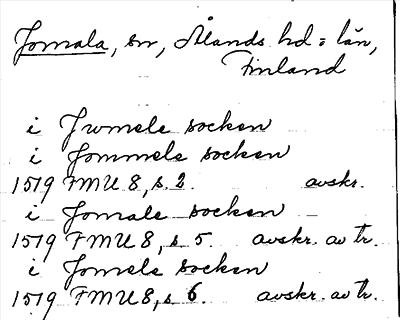 Jomala, sn, Ålands hd = län,
Finland
i Jwmele socken
i Jommele socken
1519 FMU 8, s. 2. avskr.
i Jomale socken
1519 FMU 8, s. 5. avskr. av tr.
i Jomele socken
1519 FMU 8, s. 6. avskr. av tr.